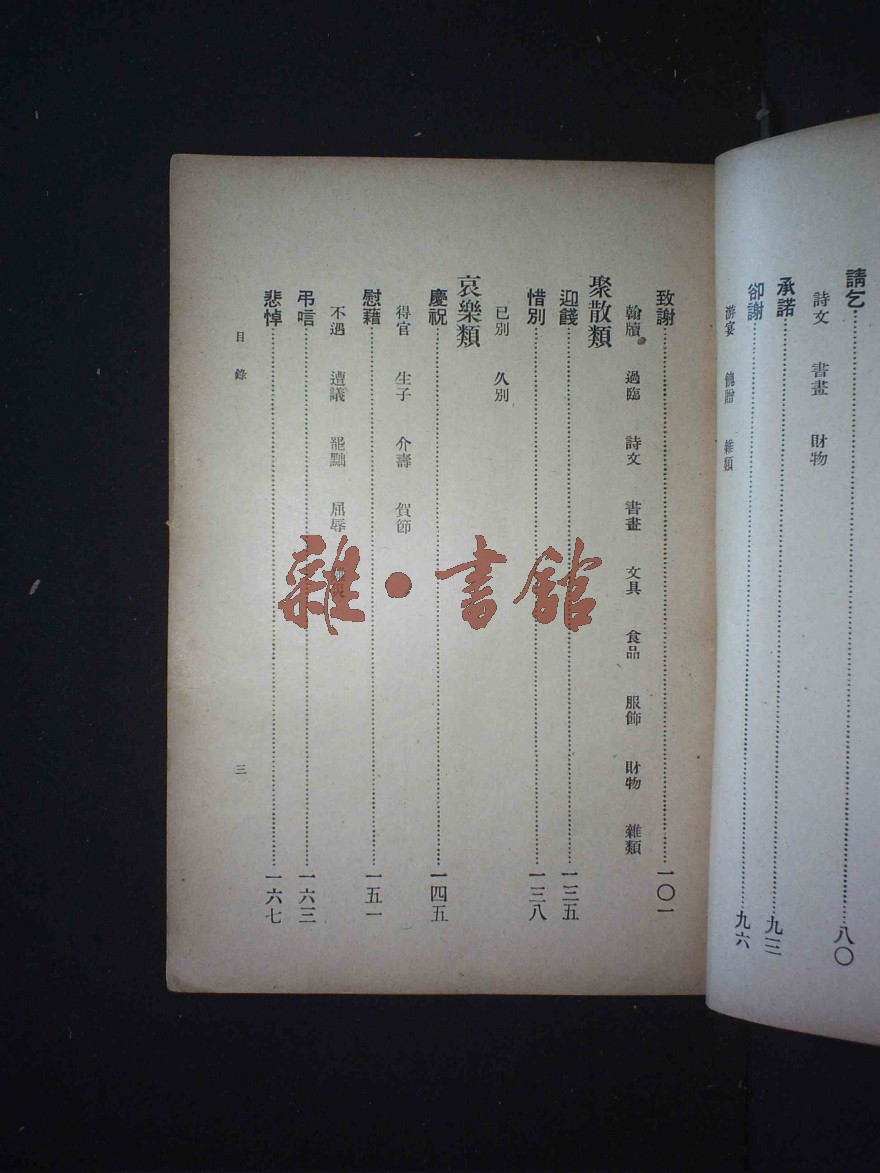 請乞……八〇
詩文 書畫 財物
承諾……九三
卻謝……九六
游宴 餽贈 雜類
致謝……一〇一
翰牘 過臨 詩文 書畫 文具 食品 服飾 財物 雜類
聚散類
迎餞……一三五
惜別……一三八
已別 久別
哀樂類
慶祝……一四五
得官 生子 介壽 賀節
慰藉……一五一
不遇 遭議 罷黜 屈辱
弔唁……一六三
悲悼……一六七
目錄
三
雜·書館